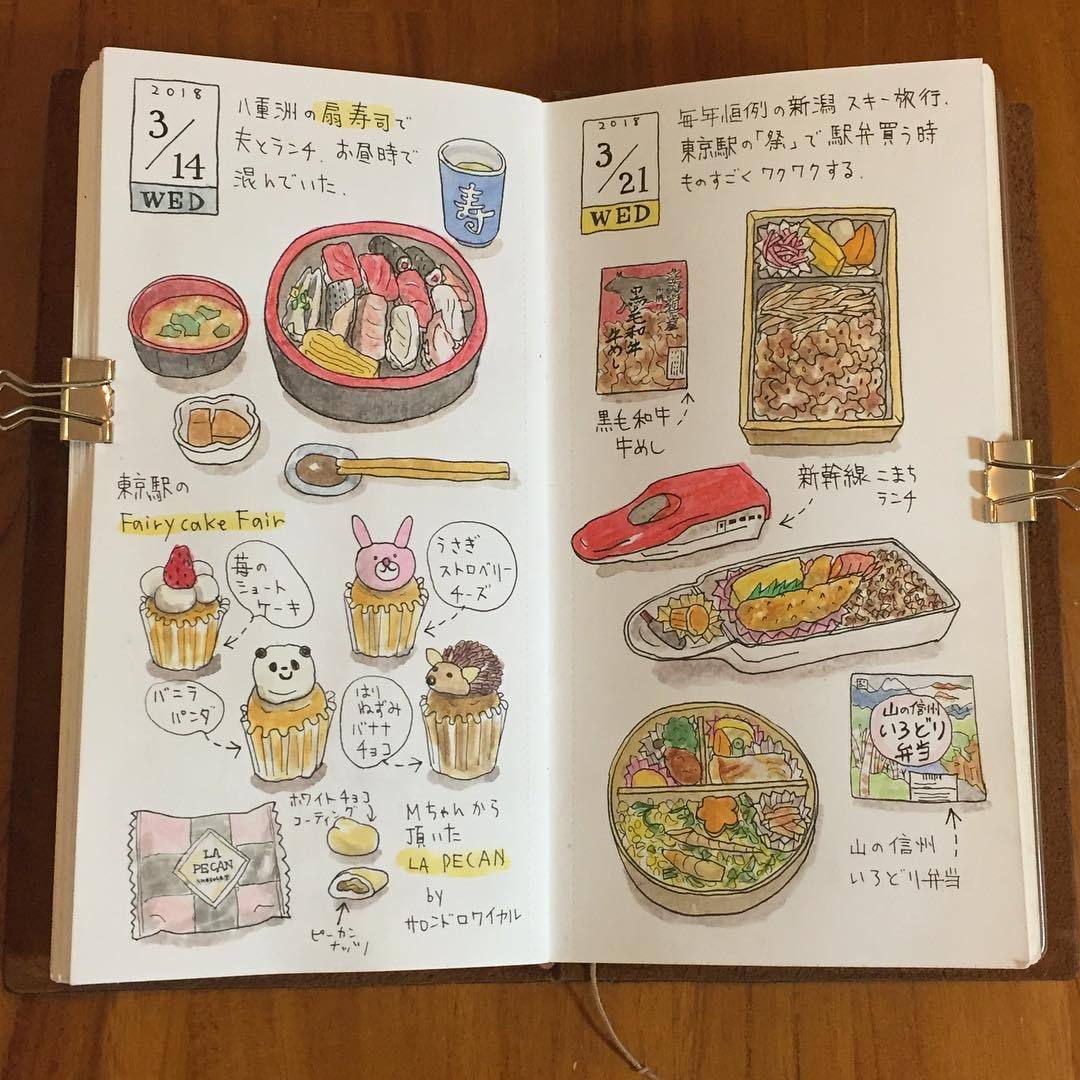 2018
3/14
WED
八重洲の扇寿司で
夫とランチ. お昼時で
混んでいた.
寿
東京駅の
Fairycake Fair
苺の
ショート
ケーキ
うさぎ
ストロベリー
チーズ
バニラ
パンダ
はり
ねずみ
バナナ
チョコ
LA
PECAN
ホワイトチョコ
コーティング
ピーカン
ナッツ
Mちゃんから
頂いた
LA PECAN
by
サロンドロワイヤル
2018
3/21
WED
毎年恒例の新潟 スキー旅行.
東京駅の「祭」で駅弁買う時
ものすごくワクワクする.
黒毛和牛
牛めし
黒毛和牛
牛めし
新幹線 こまち
ランチ
山の信州
いろどり
弁当
山の信州
いろどり弁当